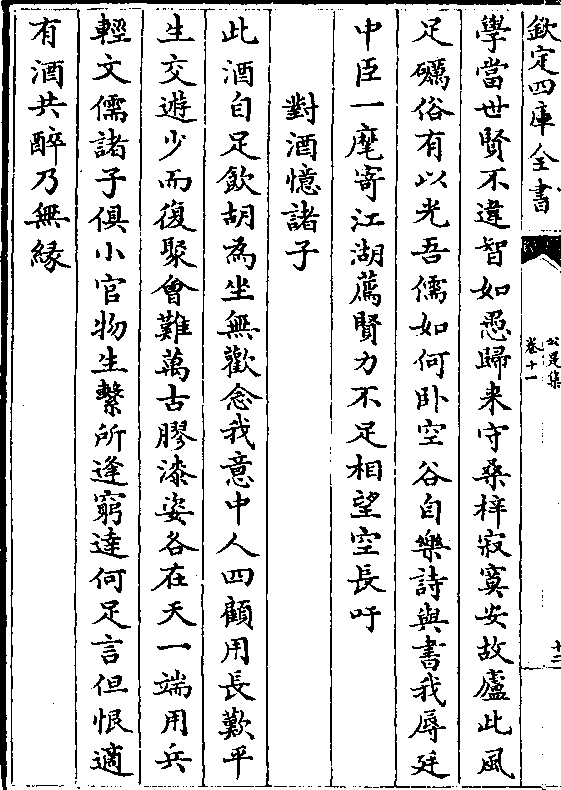 欽定四庫全書
公是集
卷十一
十三
學當世賢不違智如愚歸来守桑梓寂寞安故廬此風
足礪俗有以光吾儒如何卧空谷自樂詩與書我辱廷
中臣一麾寄江湖薦賢力不足相望空長吁
對酒憶諸子
此酒自足飲胡為坐無歡念我意中人四顧用長歎平
生交遊少而復聚會難萬古膠漆姿各在天一端用兵
輕文儒諸子俱小官物生繫所逢窮達何足言但恨適
有酒共醉乃無縁